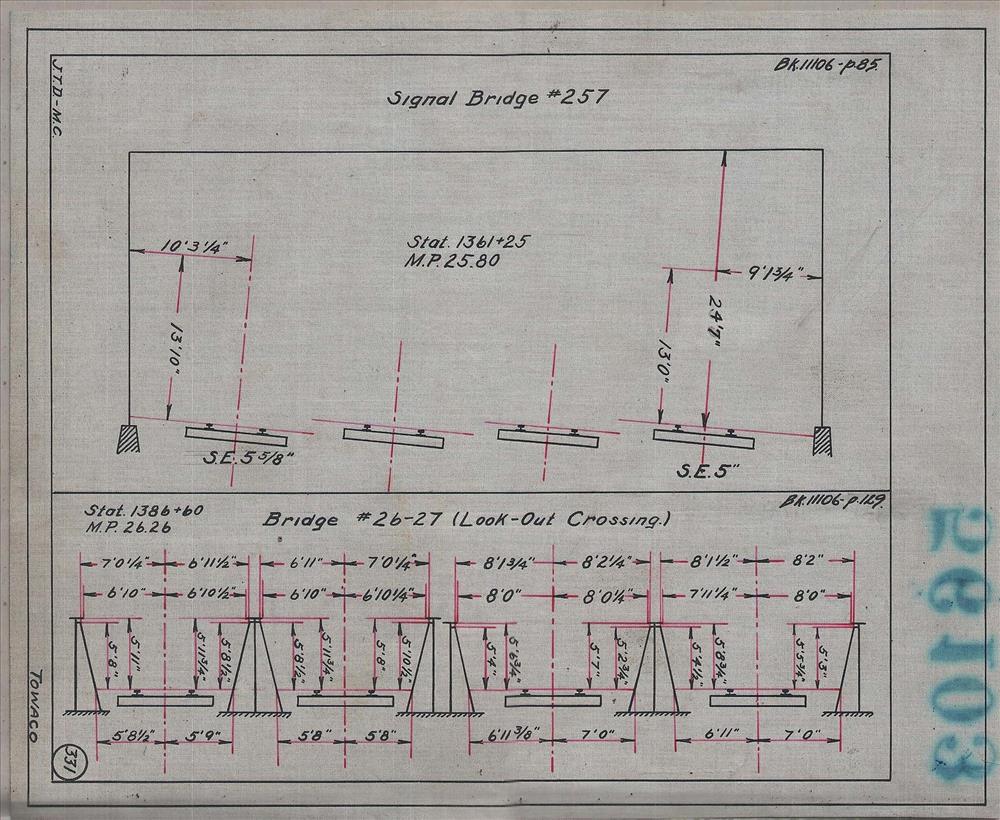 J.T.D-M.C.
BK.11106-p.85.
Signal Bridge #257
10'3 1/4"
Stat. 1361+25
M.P. 25.80
9'1 3/4"
24'7"
13'10"
13'0"
S.E. 5 5/8"
S.E. 5"
BK.11106-p.129.
Stat. 1386+60
M.P. 26.26
Bridge #26-27 (Look-Out Crossing.)
7'0 1/4" 6'11 1/2" 6'11" 7'0 1/4" 8'1 3/4" 8'2 1/4" 8'1 1/2" 8'2"
6'10" 6'10 1/2" 6'10" 6'10 1/4" 8'0" 8'0 1/4" 7'11 1/4" 8'0"
5'8" 5'11" 5'11 3/4" 5'8 1/2" 5'8 1/2" 5'11 3/4" 5'8" 5'10 1/2" 5'4" 5'6 3/4" 5'7" 5'2 3/4" 5'4 1/2" 5'8 3/4" 5'5 3/4" 5'3"
5'8 1/2" 5'9" 5'8" 5'8" 6'11 3/8" 7'0" 6'11" 7'0"
TOWACO
331
56103